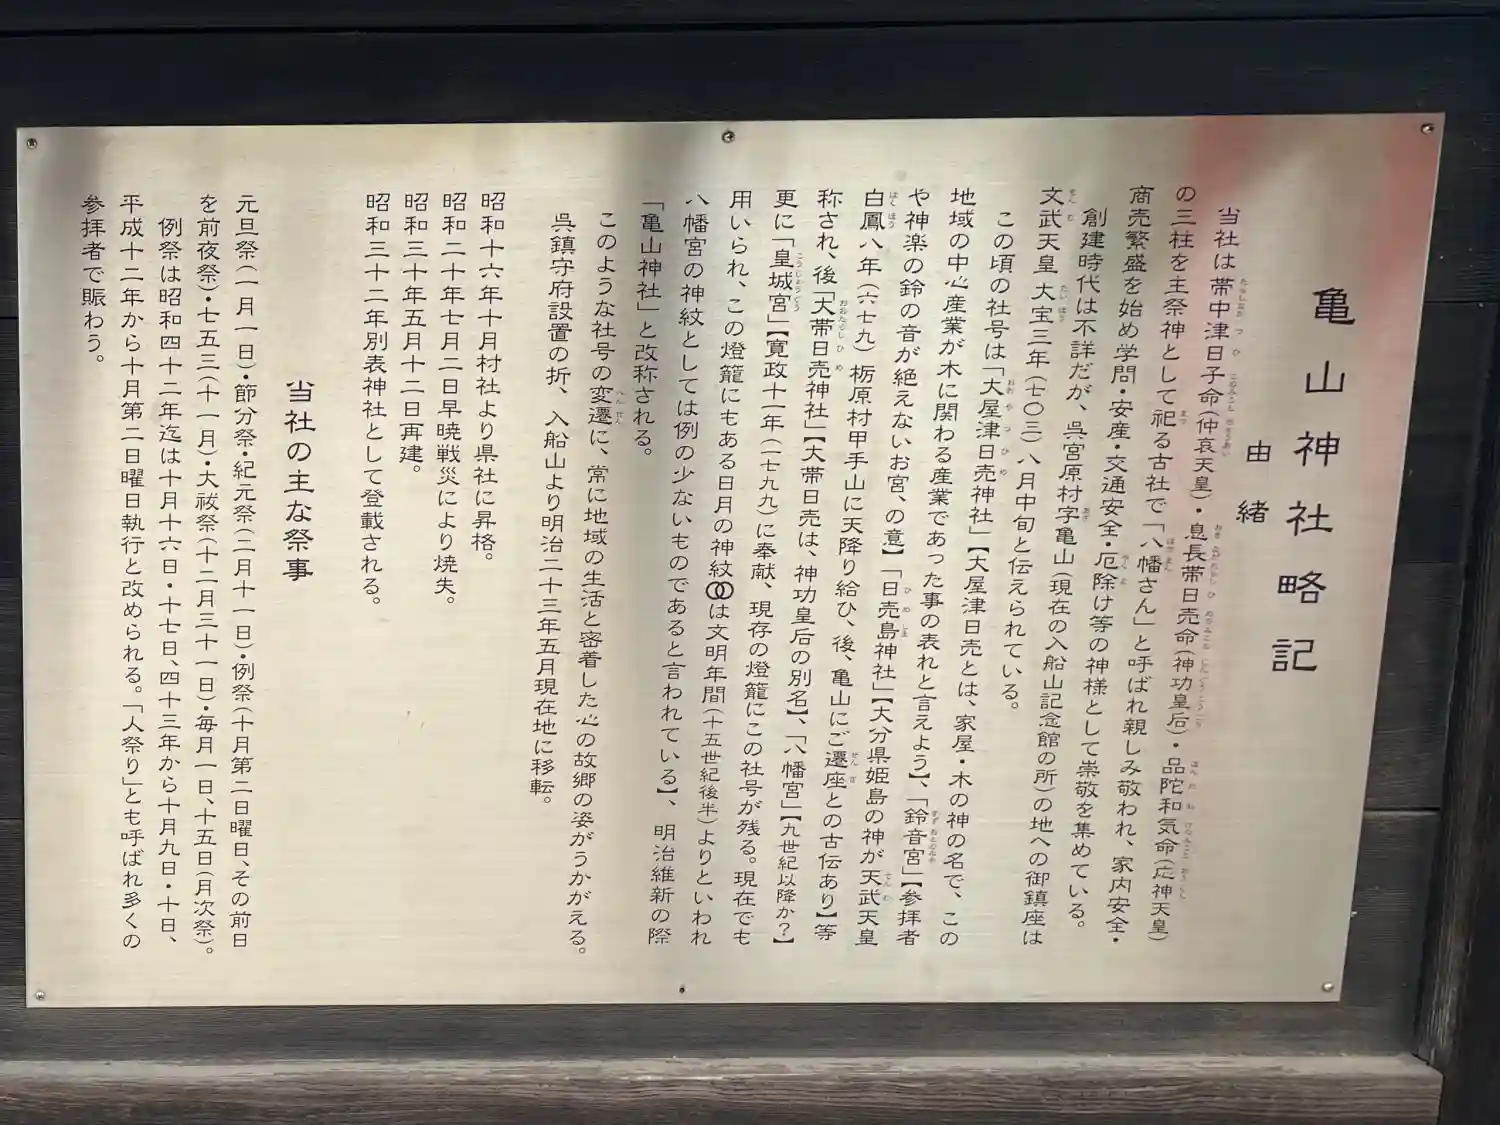 亀山神社略記
由緒
当社は帯中津日子命(仲哀天皇)・息長帯日売命(神功皇后)・品陀和気命(応神天皇)
の三柱を主祭神として祀る古社で「八幡さん」と呼ばれ親しみ敬われ、家内安全・
商売繁盛を始め学問・安産・交通安全・厄除け等の神様として崇敬を集めている。
創建時代は不詳だが、呉宮原村字亀山(現在の入船山記念館の所)の地への御鎮座は
文武天皇 大宝三年(七〇三)八月中旬と伝えられている。
この頃の社号は「大屋津日売神社」【大屋津日売とは、家屋・木の神の名で、この
地域の中心産業が木に関わる産業であった事の表れと言えよう】、「鈴音宮」【参拝者
や神楽の鈴の音が絶えないお宮、の意】「日売島神社」【大分県姫島の神が天武天皇
白鳳八年(六七九)栃原村甲手山に天降り給ひ、後、亀山にご遷座との古伝あり】等
称され、後「大帯日売神社」【大帯日売は、神功皇后の別名】、「八幡宮」【九世紀以降か?】
更に「皇城宮」【寛政十一年(一七九九)に奉献、現存の燈籠にこの社号が残る。現在でも
用いられ、この燈籠にもある日月の神紋は文明年間(十五世紀後半)よりといわれ
八幡宮の神紋としては例の少ないものであると言われている】、明治維新の際
「亀山神社」と改称される。
このような社号の変遷に、常に地域の生活と密着した心の故郷の姿がうかがえる。
呉鎮守府設置の折、入船山より明治二十三年五月現在地に移転。
昭和十六年十月村社より県社に昇格。
昭和二十年七月二日早暁戦災により焼失。
昭和三十年五月十二日再建。
昭和三十二年別表神社として登載される。
当社の主な祭事
元旦祭(一月一日)・節分祭・紀元祭(二月十一日)・例祭(十月第二日曜日、その前日
を前夜祭)・七五三(十一月)・大祓祭(十二月三十一日)・毎月一日、十五日(月次祭)。
例祭は昭和四十二年迄は十月十六日・十七日、四十三年から十月九日・十日、
平成十二年から十月第二日曜日執行と改められる。「人祭り」とも呼ばれ多くの
参拝者で賑わう。